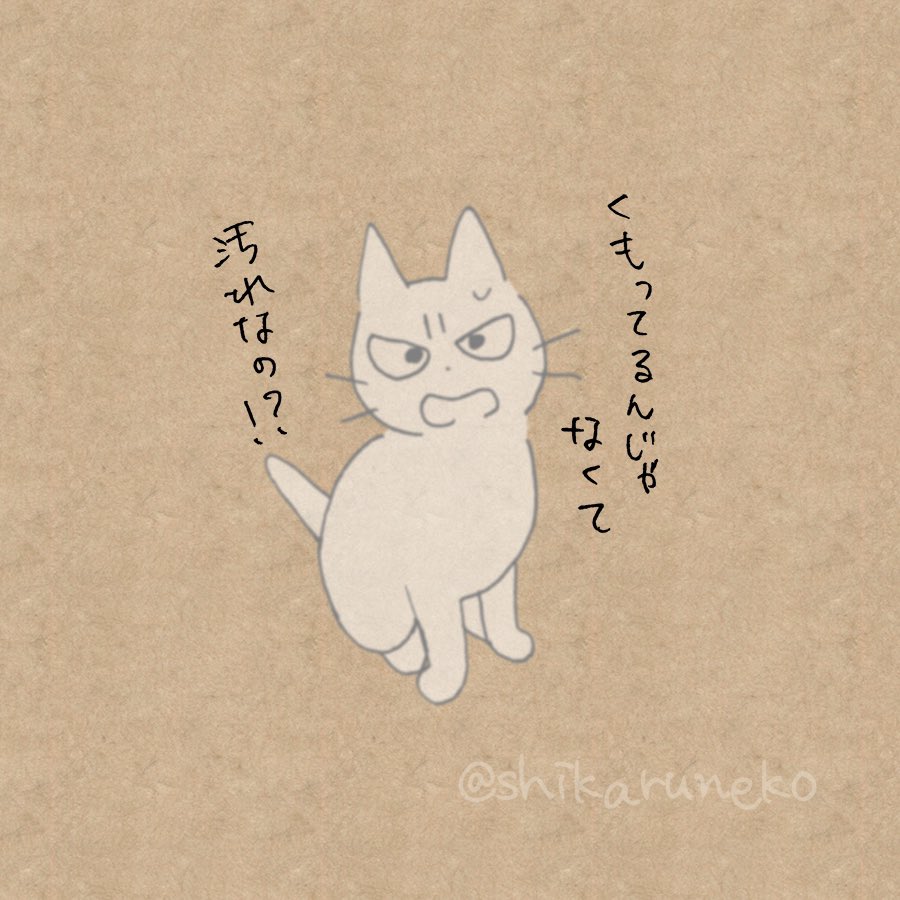 くもってるんじゃ
なくて
汚れなの!?
@shikaruneko